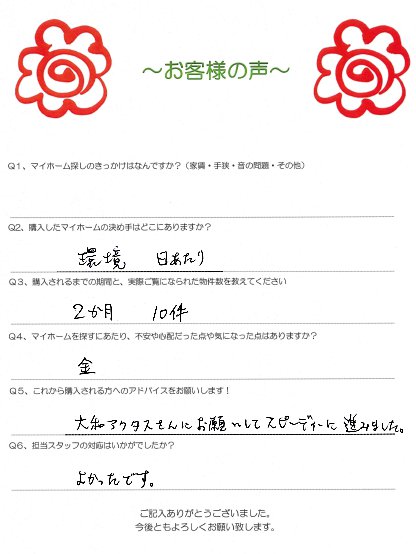 ～お客様の声～
Q1、マイホーム探しのきっかけはなんですか？（家賃・手狭・音の問題・その他）
Q2、購入したマイホームの決め手はどこにありますか？
環境 日あたり
Q3、購入されるまでの期間と、実際ご覧になられた物件数を教えてください
2か月 10件
Q4、マイホームを探すにあたり、不安や心配だった点や気になった点はありますか？
金
Q5、これから購入される方へのアドバイスをお願いします！
大和アクタスさんにお願いしてスピーディーに進みました。
Q6、担当スタッフの対応はいかがでしたか？
よかったです。
ご記入ありがとうございました。
今後ともよろしくお願い致します。